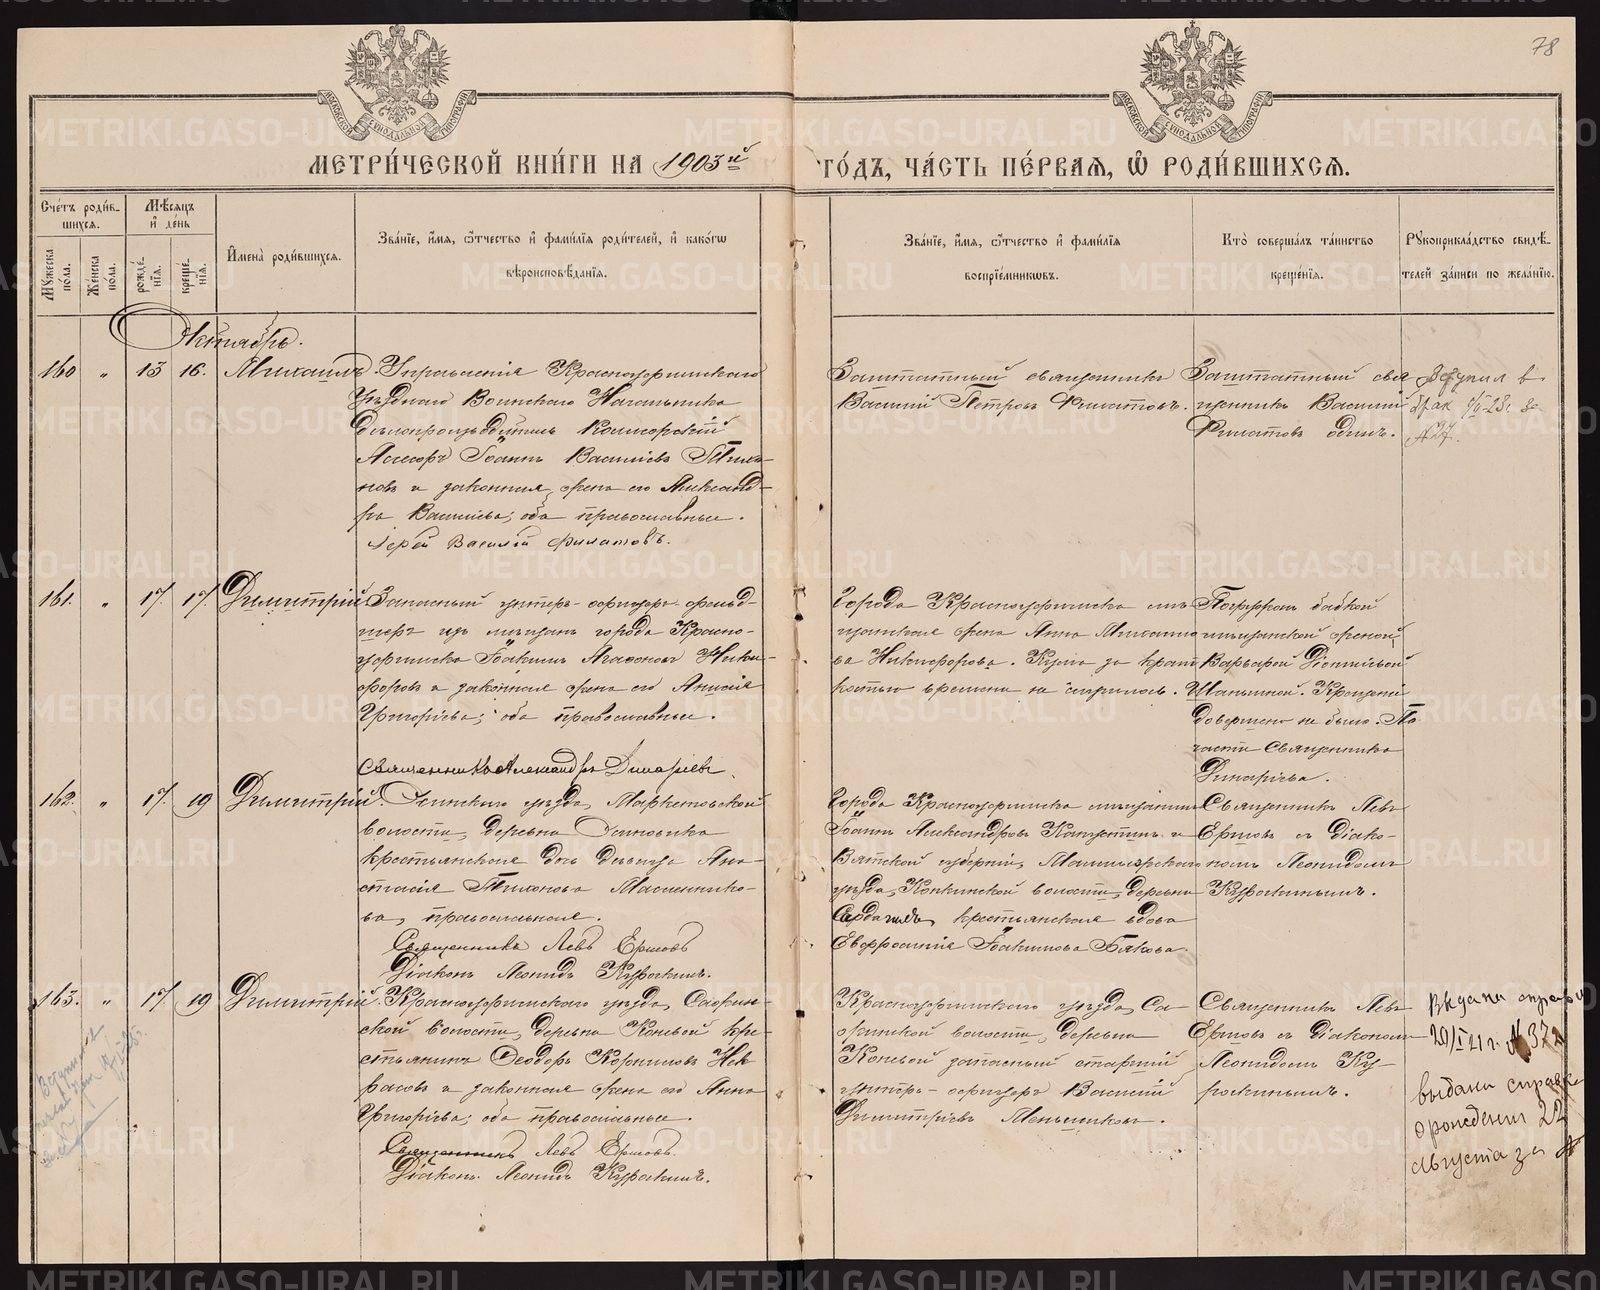 78
МОСКОВСКОЙ СѴНОДАЛЬНОЙ ТИПОГРАФІИ
МОСКОВСКОЙ СѴНОДАЛЬНОЙ ТИПОГРАФІИ
МЕТРИ́ЧЕСКОЙ КНИ́ГИ НА 1903й
ГО́ДЪ, ЧА́СТЬ ПЕ́РВАЯ, Ѡ РОДИ́ВШИХСЯ.
Сче́тъ роди́в-
шихся.
Мѣ́сяцъ
и́ де́нь
Мужеска
по́ла.
Же́нска
пола.
рожде́-
нїя.
креще́-
нїя.
И́мена̀ роди́вшихся.
Зва́нїе, и́мя, ѻ́тчество и́ фами́лїя роди́телей, и́ како́гѡ
вѣроисповѣ́данїя.
Зва́нїе, и́мя, ѻ́тчество и́ фами́лїя
воспрїе́мниковъ.
Кто̀ соверша́лъ та́инство
креще́нїя.
Рукоприкла́дство свидѣ́-
телей за́писи по жела́нїю.
Октябрь.
160 " 13 16. Михаилъ
Управленія Красноуфимскаго
Уѣзднаго Воинскаго Начальника
дѣлопроизводитель Коллежскій
Асессоръ Іоаннъ Васильевъ Тихо-
новъ и законная жена его Александ-
ра Васильева; оба православные.
Іерей Василій Филатовъ.
Заштатный священникъ
Василій Петровъ Филатовъ.
Заштатный свя
щенникъ Василій
Филатовъ одинъ.
Вступил в
брак
№ 27.
161. " 17. 17. Димитрій
Запасный унтеръ-офицеръ фельд-
шеръ изъ мѣщанъ города Красно-
уфимска Іоакимъ Агафоновъ Ники-
форовъ и законная жена его Анисія
Григорьева; оба православные.
Священникъ Александръ Динаріевъ.
Города Красноуфимска мѣ
щанская жена Анна Михайло
ва Никифорова. Кума за крат
костью времени не случилось.
Погруженъ бабкой
мѣщанской женой
Варварой Діонисьевой
Шаньгиной. Крещеніе
довершено не было. По
части Священника
Динаріева.
162. " 17. 19 Димитрій.
Осинскаго уѣзда, Маркетовской
волости, деревни
крестьянская дочь дѣвица Ана-
стасія Тихонова Масленнико-
ва, православная.
Священникъ Левъ Ершовъ
Діаконъ Леонидъ Куроскинъ.
Города Красноуфимска мѣщанинъ
Іоаннъ Александровъ Капустинъ и
Вятской губерніи, Малмыжскаго
уѣзда, Конкинской волости, деревни
крестьянская вдова
Евфросинія Іоакимова Бякова.
Священникъ Левъ
Ершовъ съ діако-
номъ Леонидомъ
Куроскинымъ.
163. " 17. 19 Димитрій.
Красноуфимскаго уѣзда, Сажин-
ской волости, деревни Коневой кре-
стьянинъ Ѳеодоръ Корниловъ Нек-
расовъ и законная жена его Анна
Григорьева; оба православные.
Священникъ Левъ Ершовъ.
Діаконъ Леонидъ Куроскинъ.
Красноуфимскаго уѣзда, Са-
жинской волости, деревни
Коневой запасный старшій
унтеръ-офицеръ Василій
Димитріевъ Меньшиковъ.
Священникъ Левъ
Ершовъ съ діакономъ
Леонидомъ Ку-
роскинымъ.
Выдана справка
20/I 21 г. № 372
выдана справка
о рождении 22
августа за №
METRIKI.GASO-URAL.RU